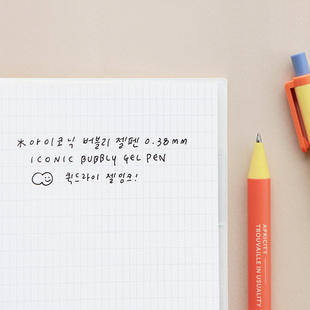 *아이코닉 버블리 젤펜 0.38mm
ICONIC BUBBLY GEL PEN
퀵드라이 젤잉크!
APRICITY
TROUVAILLE IN USUALITY